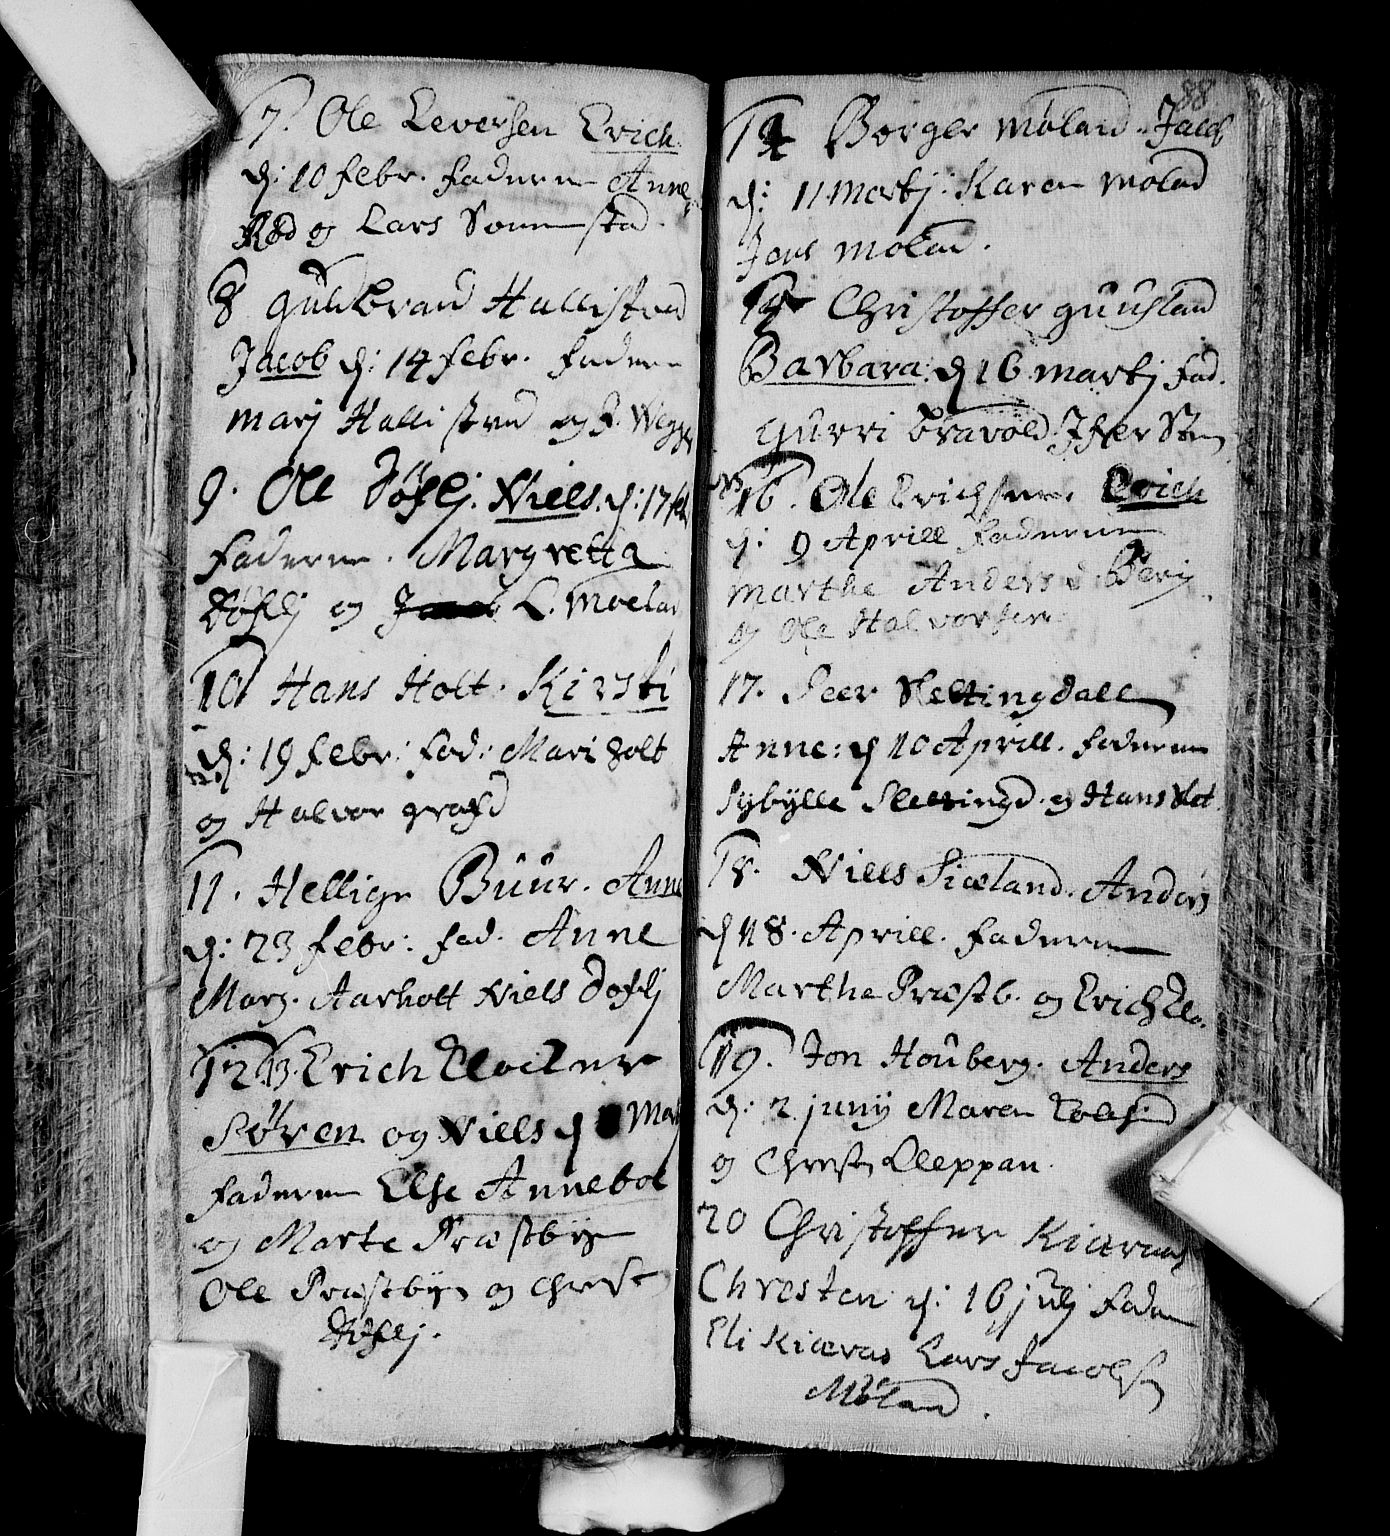 7. Ole Leversen Erich.
d: 10 febr. fadderne Anne
Rød og Lars Sommstad.
8 Guldbrand Hallistved
Jacob d: 14 febr. faddern
marj Hallistved og J. Wegger
9. Ole Døflj. Niels. d: 17 feb
fadderne. Margretta
Døflj og L. Moelad
10 Hans Holt. Kirsti
d: 19 febr: fad: Mari Holt
og Halvor
11. Hellige Buur. Anne
d: 23 febr: fad. Anne
Marg. Aarholt Niels Doflj
12 13. Erich Clocker
Søren og Niels d Mar
faddern Else Annebol
og Marte Præstbye
Ole Præstbye og Christ
Døflj.
88
14 Børger møland. Jacob
d: 11 Martj. Karen molad
Jens molad.
15 Christoffer guusland
Barbara: d 16 martj fad.
gurri bravold. Ifver Sten
16. Ole Erichsen. Erich
d: 9 Aprill fadderne
marthe Anders d. Berg
og Ole Halvorsen
17. Peer Slettingdall
Anne: d 10 Aprill. fadderne
Sybylle Slettingd. og Hans Slet
18. Niels Siæland. Anders
d 18. Aprill. fadderne
Marthe Præstb. og Erich Clo.
19. Jon Houberg. Anders
d: 2 junij Maren
og Christ Kleppan.
20 Christoffer Kiæraas
Chresten d: 16 julj fadde
Eli Kiæraas Lars Jacobs
Møland.